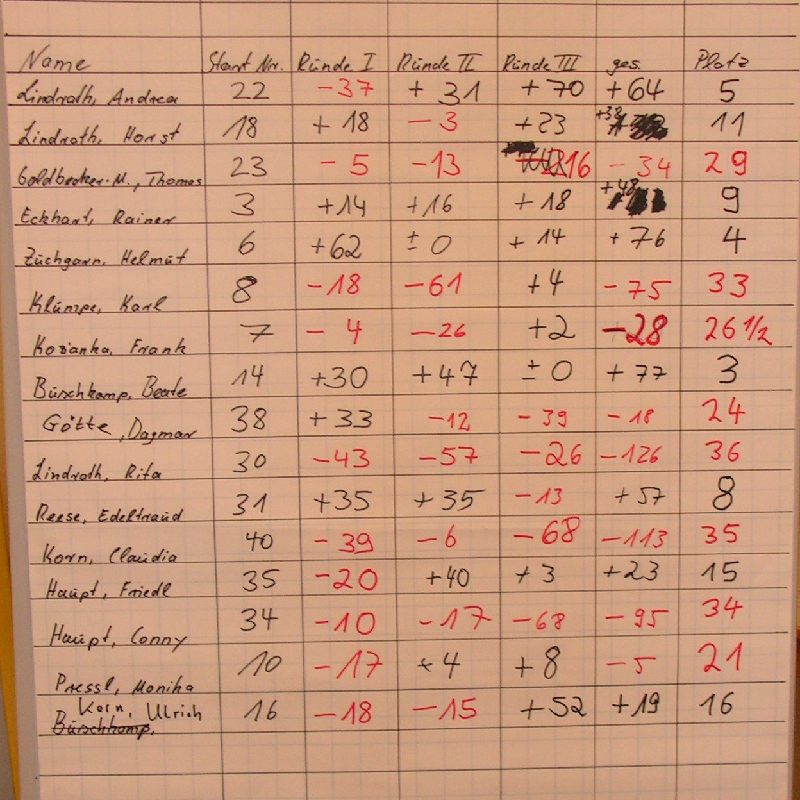 Name Start Nr. Ründe I Ründe II Ründe III ges. Platz
Lindrath, Andrea 22 -37 + 31 +70 +64 5
Lindroth, Horst 18 + 18 - 3 +23 +38 11
Goldbecker-M., Thomas 23 - 5 -13 -16 - 34 29
Eckhart, Rainer 3 +14 +16 + 18 +48 9
Züchgarn, Helmut 6 +62 ± 0 + 14 + 76 4
Klümpe, Karl 8 -18 -61 +4 - 75 33
Kozianka, Frank 7 - 4 -26 +2 -28 26 1/2
Büschkamp, Beate 14 +30 +47 ± 0 + 77 3
Götte, Dagmar 38 + 33 -12 - 39 - 18 24
Lindrath, Rita 30 -43 -57 -26 -126 36
Reese, Edeltraud 31 +35 +35 -13 +57 8
Korn, Claudia 40 -39 -6 -68 -113 35
Haupt, Friedl 35 -20 +40 +3 +23 15
Haupt, Conny 34 -10 -17 -68 -95 34
Pressl, Monika 10 -17 +4 +8 -5 21
Korn, Ulrich 16 -18 -15 +52 +19 16
Büschkamp,